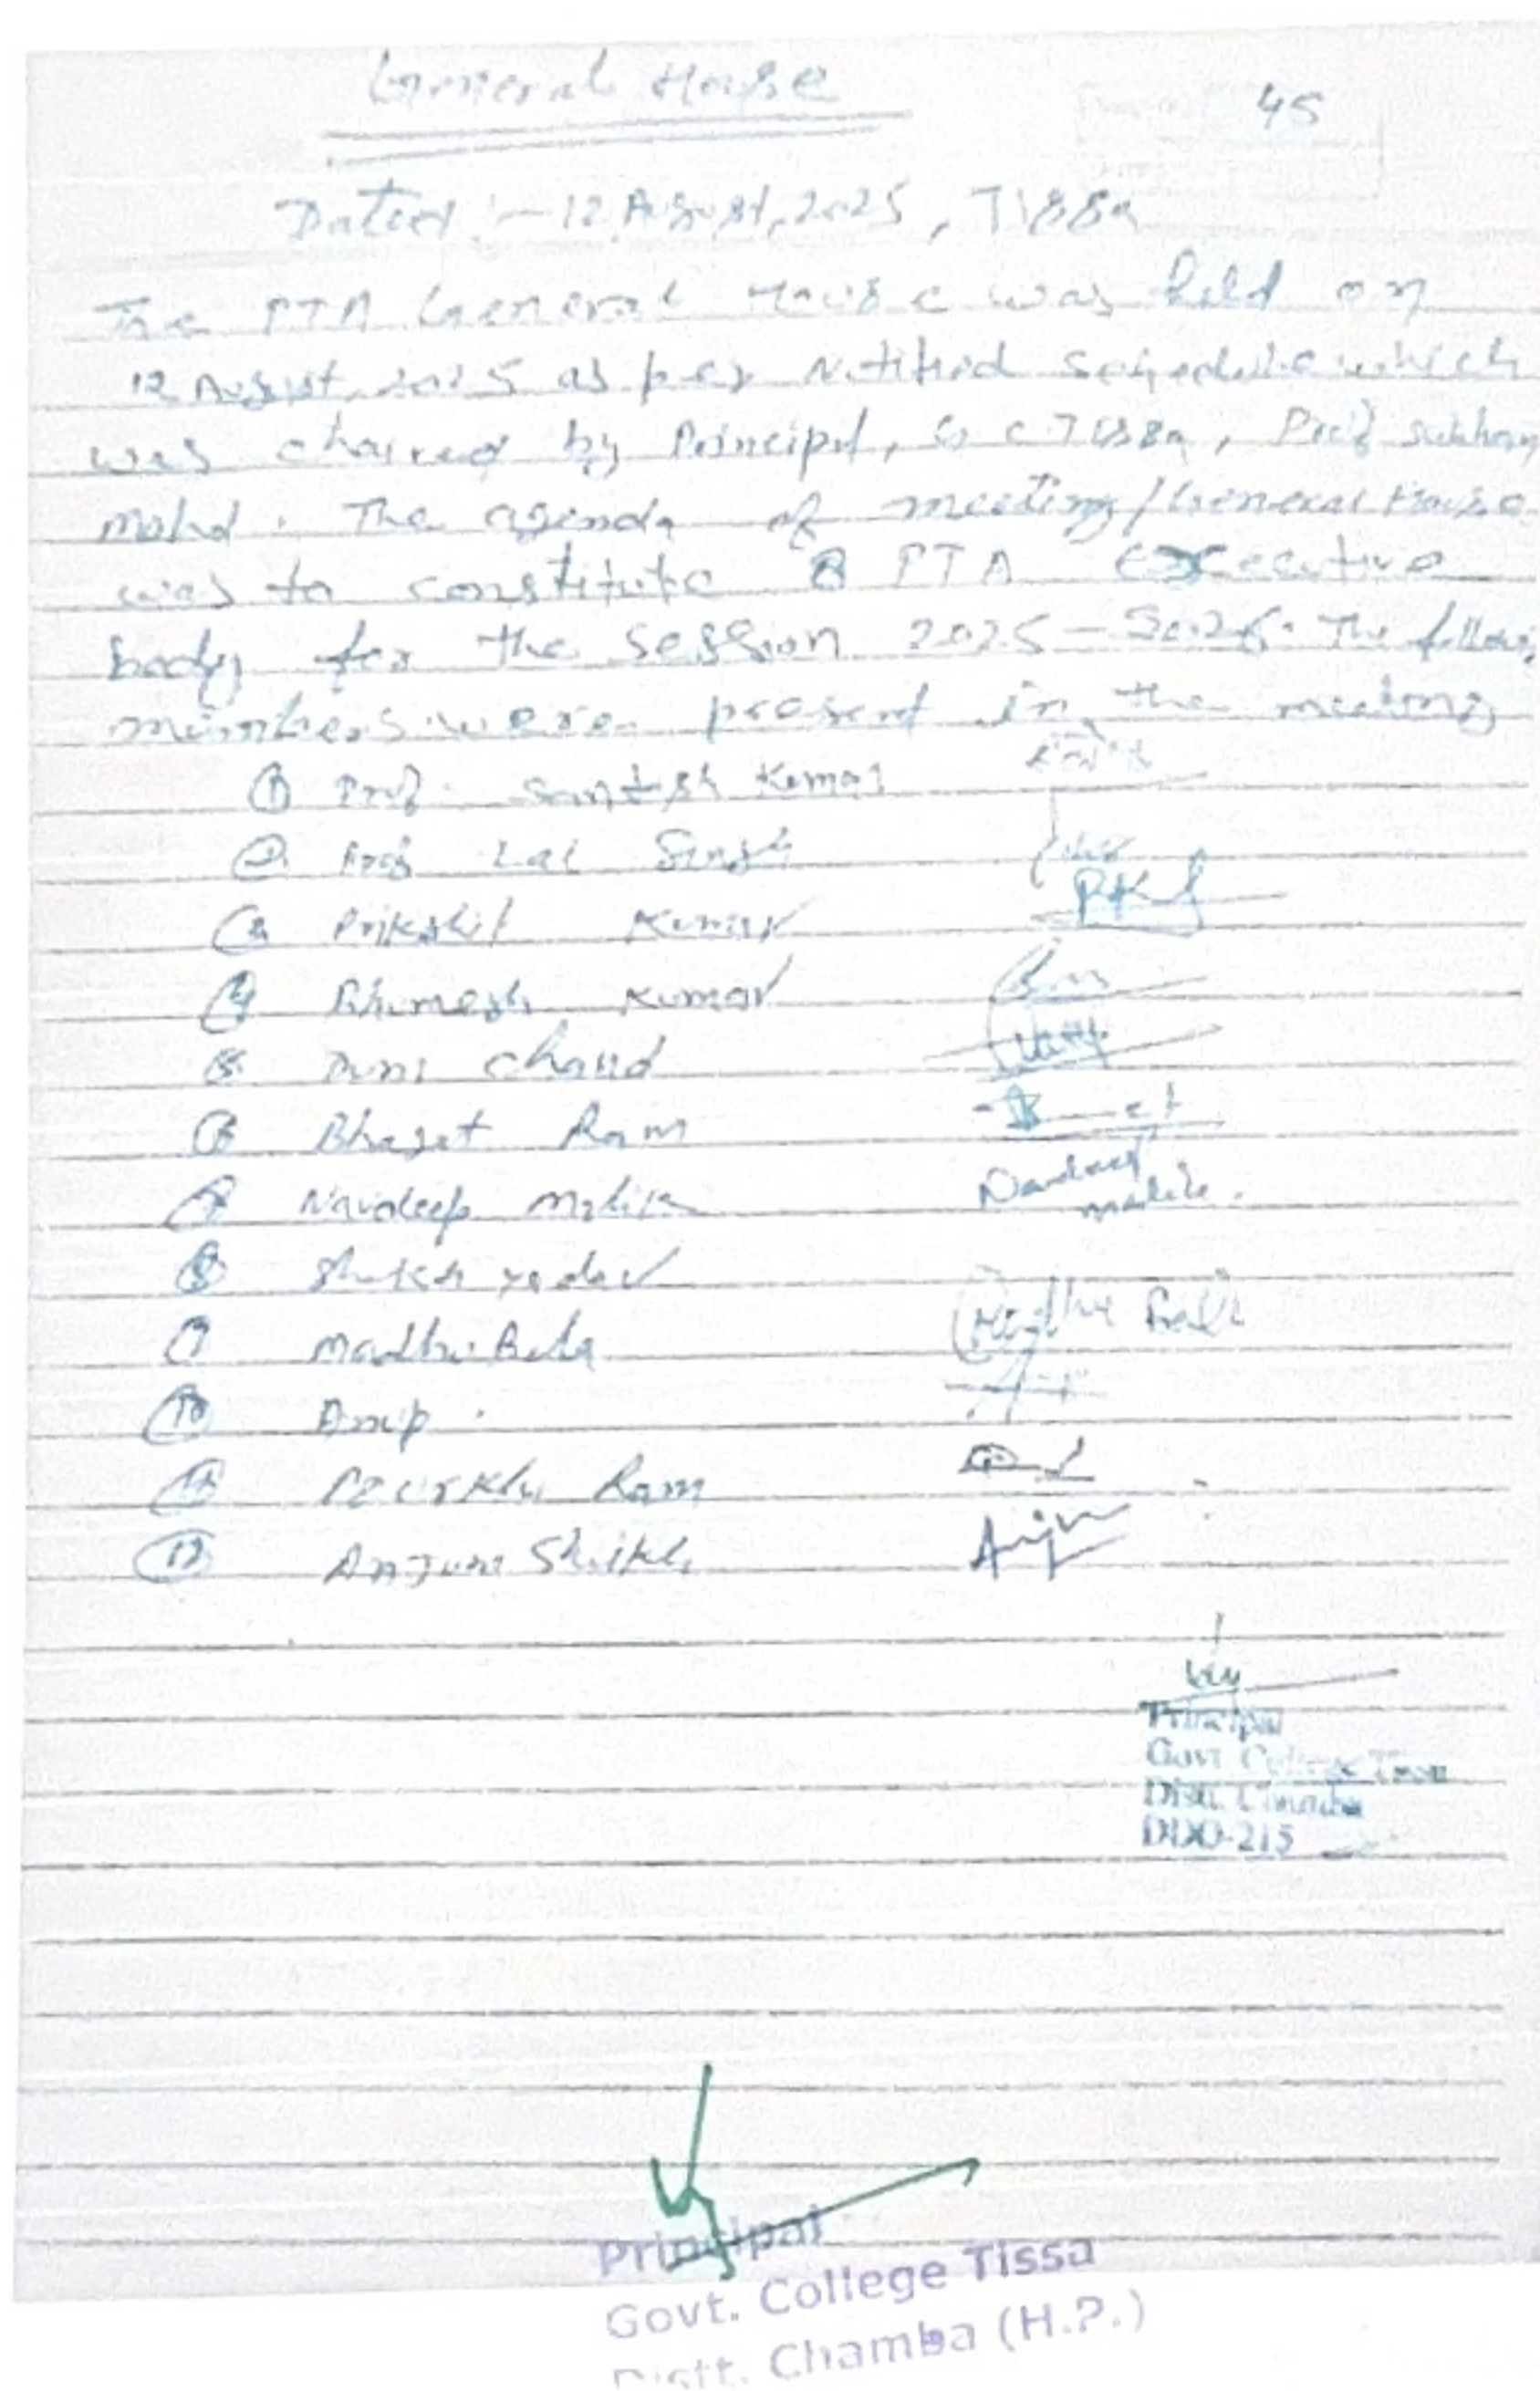 General House
45
Dated :- 12 August, 2025, Tissa
The PTA General House was held on
12 August, 2025 as per Notified schedule which
was chaired by Principal, G C Tissa, Prof
Mohd. The agenda of meeting/General House
was to constitute PTA Executive
body for the session 2025-2026. The
members were present in the meeting
① Prof. Santosh Kumar
② Prof Lal Singh
③ Prikshit Kumar PK
④ Bhumesh Kumar
5. Duni Chand
⑥ Bhagat Ram
⑦ Navdeep Malik
⑧ yadav
⑨ Madhu Bala Madhu Bala
⑩ Anup
⑪ Ram
⑫ Anjum Shikh Anjum
Principal
Govt. College Tissa
Distt. Chamba
DDO-215
Principal
Govt. College Tissa
Distt. Chamba (H.P.)